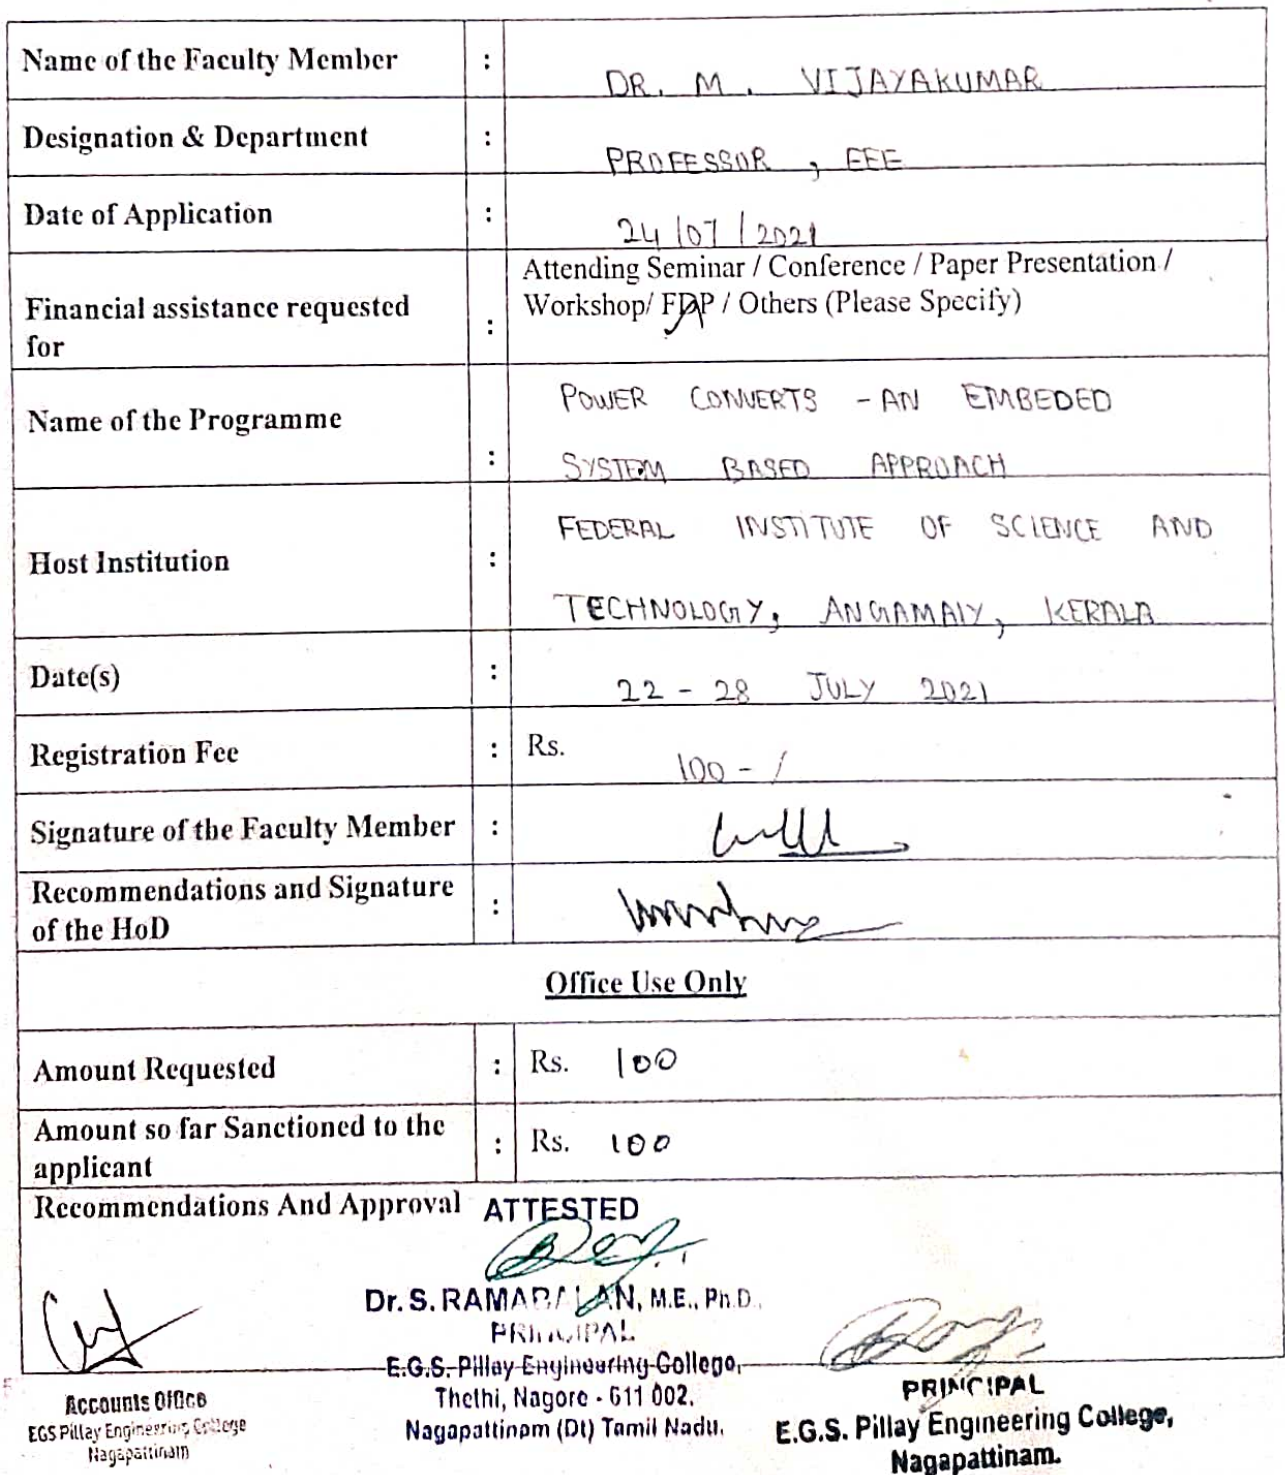 Name of the Faculty Member : DR. M. VIJAYAKUMAR
Designation & Department : PROFESSOR, EEE
Date of Application : 24/07/2021
Attending Seminar / Conference / Paper Presentation /
Financial assistance requested : Workshop/ FDP / Others (Please Specify)
for
Name of the Programme : POWER CONVERTS - AN EMBEDED
SYSTEM BASED APPROACH
Host Institution : FEDERAL INSTITUTE OF SCIENCE AND
TECHNOLOGY, ANGAMALY, KERALA
Date(s) : 22 - 28 JULY 2021
Registration Fee : Rs. 100 - /
Signature of the Faculty Member :
Recommendations and Signature :
of the HoD
Office Use Only
Amount Requested : Rs. 100
Amount so far Sanctioned to the : Rs. 100
applicant
Recommendations And Approval ATTESTED
Dr. S. RAMABALAN, M.E., Ph.D.,
PRINCIPAL
E.G.S. Pillay Engineering College,
Thethi, Nagore - 611 002.
Nagapattinam (Dt) Tamil Nadu.
Accounts Office
EGS Pillay Engineering College
Nagapattinam
PRINCIPAL
E.G.S. Pillay Engineering College,
Nagapattinam.